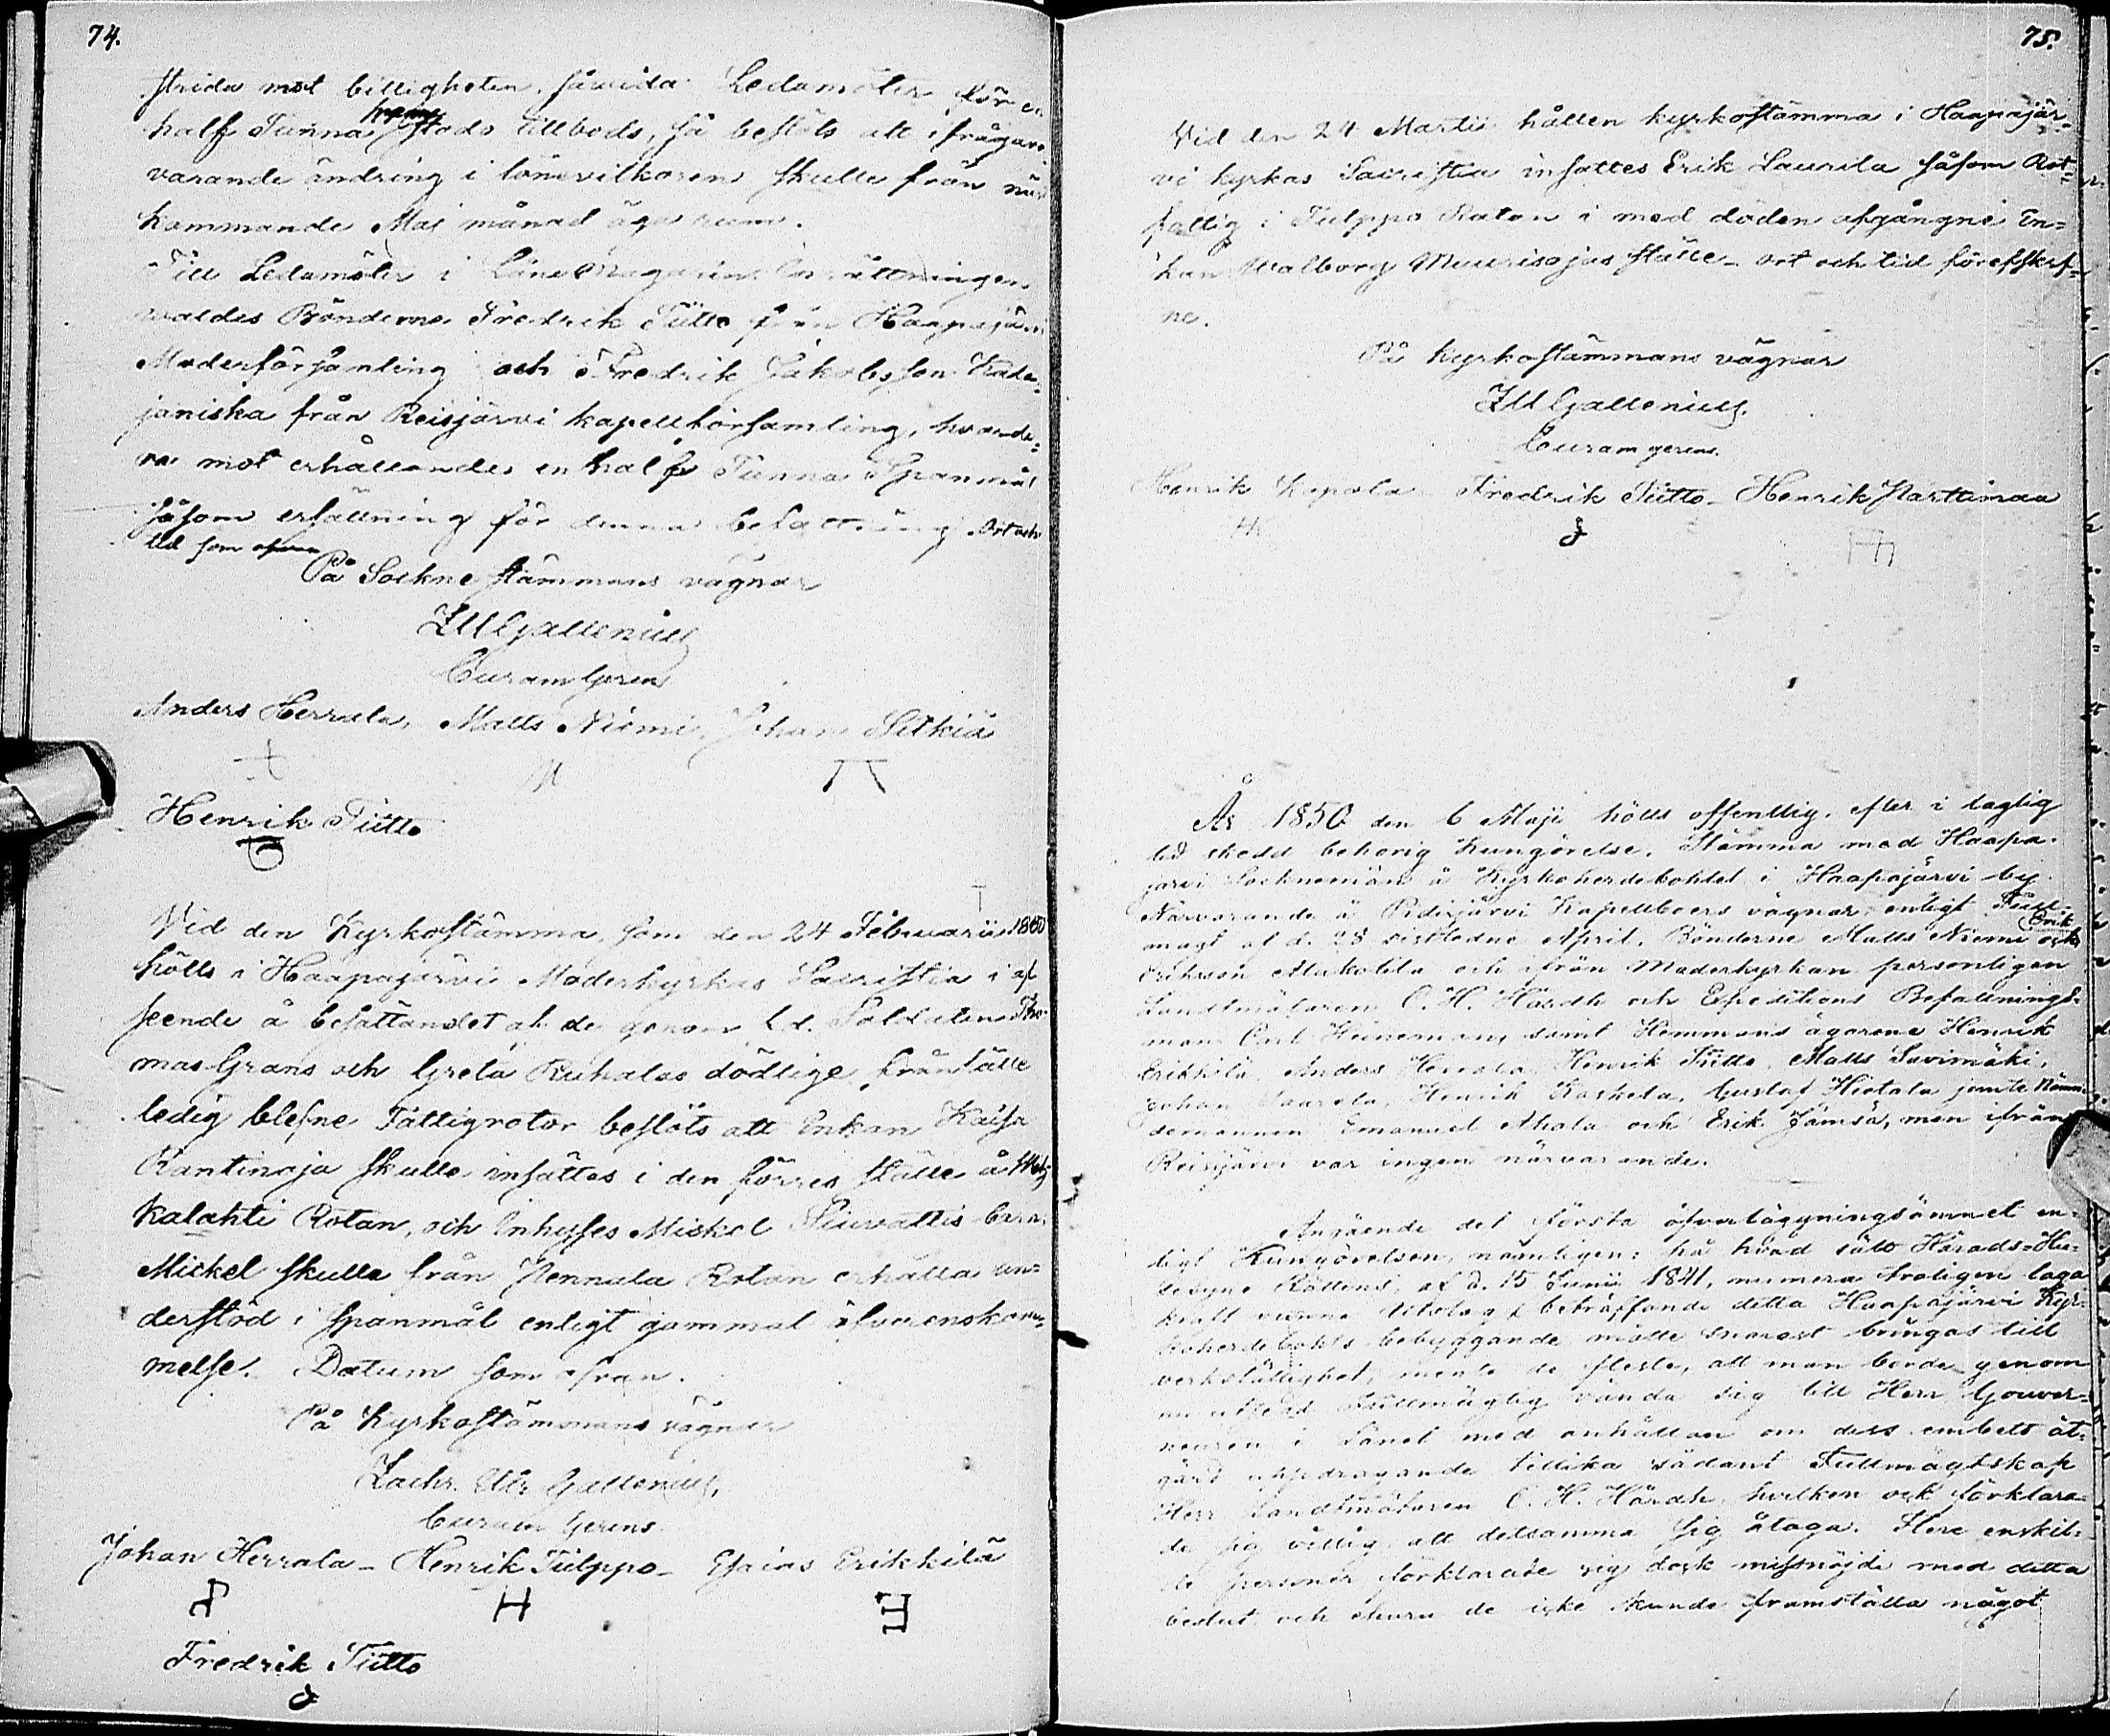 74.
strida mot billigheten, såvida Ledamöter för en
half Tunna stods tillbods, så beslöts att ifrågava-
varande ändring i lönevilkoren skulle från näst
kommande Maj månad äga rum.
Till Ledamöter i Låne Magazins inrättningen
valdes Bönderne Fredrik Tiitto från Haapajärvi
Moderförsamling och Fredrik Jakobsson Kada-
janiska från Reisjärvi kapellförsamling, hvarde-
ra mot erhållande en half Tunna Spanmål
såsom ersättning för denna befattning. Ort och
tid som ofvan
På Sockne stämmans vägnar
Z M Gallenius
Curam Gerens
Anders Herrala, Matts Niemi, Johan Pitkiä
Henrik Tiitto
Vid den Kyrkostämma, som den 24 Februarii 1850
hölls i Haapajärvi Moderkyrkas Sacristia i af
seende å besättandet af de genom f.d. Soldaten Tho-
mas Grans och Greta Ruhalas dödlige frånfälle
ledig blefne Fattigrotar beslöts att Enkan Kaisa
Rantinoja skulle insättas i den förres ställe å
kalahti Rotan, och Inhyses Miekel
Mickel skulle från Jennula Rotan erhålla un-
derstöd i spanmål enligt gammal öfverenskom-
melse. Datum som ofvan.
På Kyrkostämmans vägnar
Zachr. Ms Gallenius,
Curam Gerens
Johan Herrala - Henrik Tulppo - Esaias Erikkilä
H E
Fredrik Tiitto
75.
Vid den 24 Martii hållen kyrkostämma i Haapajär-
vi kyrkas Sacristia insattes Erik Laurila såsom Rot-
fattig i Tulppo Rotan i med döden afgångne En-
kan Walborg Muurisojas ställe - ort och tid förefskrif-
ne.
På kyrkostämmans vägnar
Z M Gallenius.
Curam gerens.
Henrik Kopola - Fredrik Tiitto - Henrik Marttinaa
År 1850 den 6 Maji hölls offentlig, efter i laglig
tid skedd behörig Kungörelse, Stämma med Haapa-
järvi Socknemän å Kyrkoherdebohlet i Haapajärvi by.
Närvarande å Pidisjärvi Kapellboers vägnar, enligt Full-
magt af d. 28 sistledne April, Bönderne Matts Niemi och Erik
Eriksson Alakotila och ifrån Moderkyrkan personligen
Landtmätaren C. H. Hårdh och Expeditions Befallnings-
man Carl Heineman, samt Hemmans ägarene Henrik
Erikkilä, Anders Herrala, Henrik Tiitto, Matts Savimäki,
Johan Laurila, Henrik Koskela, Gustaf Hietala jemte Nämn-
demännen Emanuel Ahola och Erik Jämsä, men ifrån
Reisjärvi var ingen närvarande.
Angående det första öfverläggningsämnet en-
ligt Kungörelsen, nämligen: på hvad sätt Härads-Hu-
sesyns Rättens, af d. 15 Junii 1841, numera troligen laga
kraft vunne Utslag, beträffande detta Haapajärvi Kyr-
koherdebohls bebyggande måtte snarast bringas till
verkställighet, mente de fleste, att man borde genom
en utsedd Fullmägtig vända sig till Herr Gouver-
neuren i Länet med anhållan om dess embets åt-
gärd uppdragande tillika sådant Fullmägtskap
Herr Landtmätaren C. H. Hårdh, hvilken ock förklara-
de sig villig att detsamma sig åtaga. Flere enskil-
de personer förklarade sig dock missnöjde med detta
beslut och ehuru de icke kunde framställa något